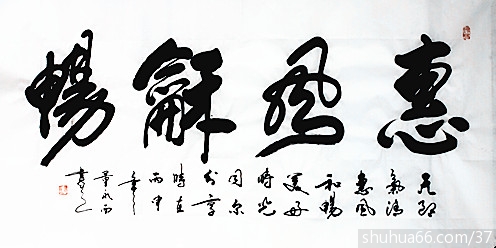 惠風龢暢
天朗
氣清
惠風
和暢
美好
時光
同尔
分享
時在
丙申
shuhua66.com/37